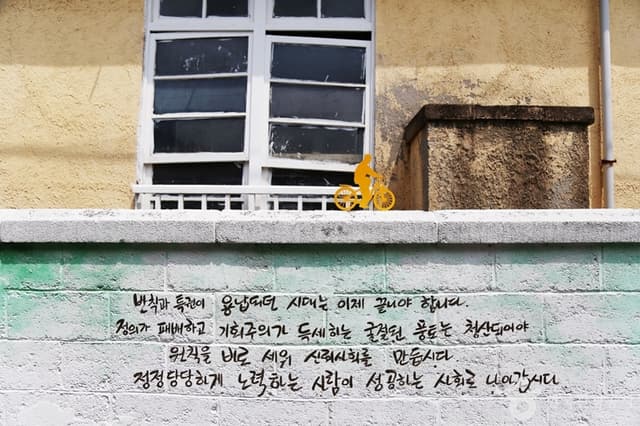 반칙과 특권이 용납되던 시대는 이제 끝나야 합니다.
정의가 패배하고 기회주의가 득세하는 굴절된 풍토는 청산되어야
원칙을 바로 세워 신뢰사회를 만듭시다.
정정당당하게 노력하는 사람이 성공하는 사회로 나아갑시다